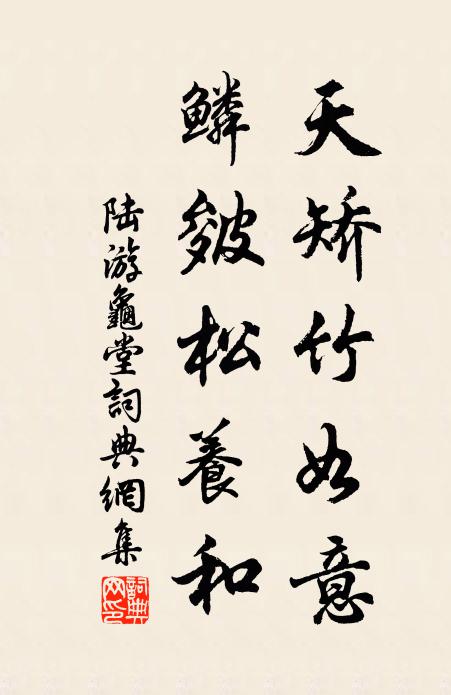 天矫竹如意
鳞皴松養和
陆游龜堂詞典網集
詞典网印